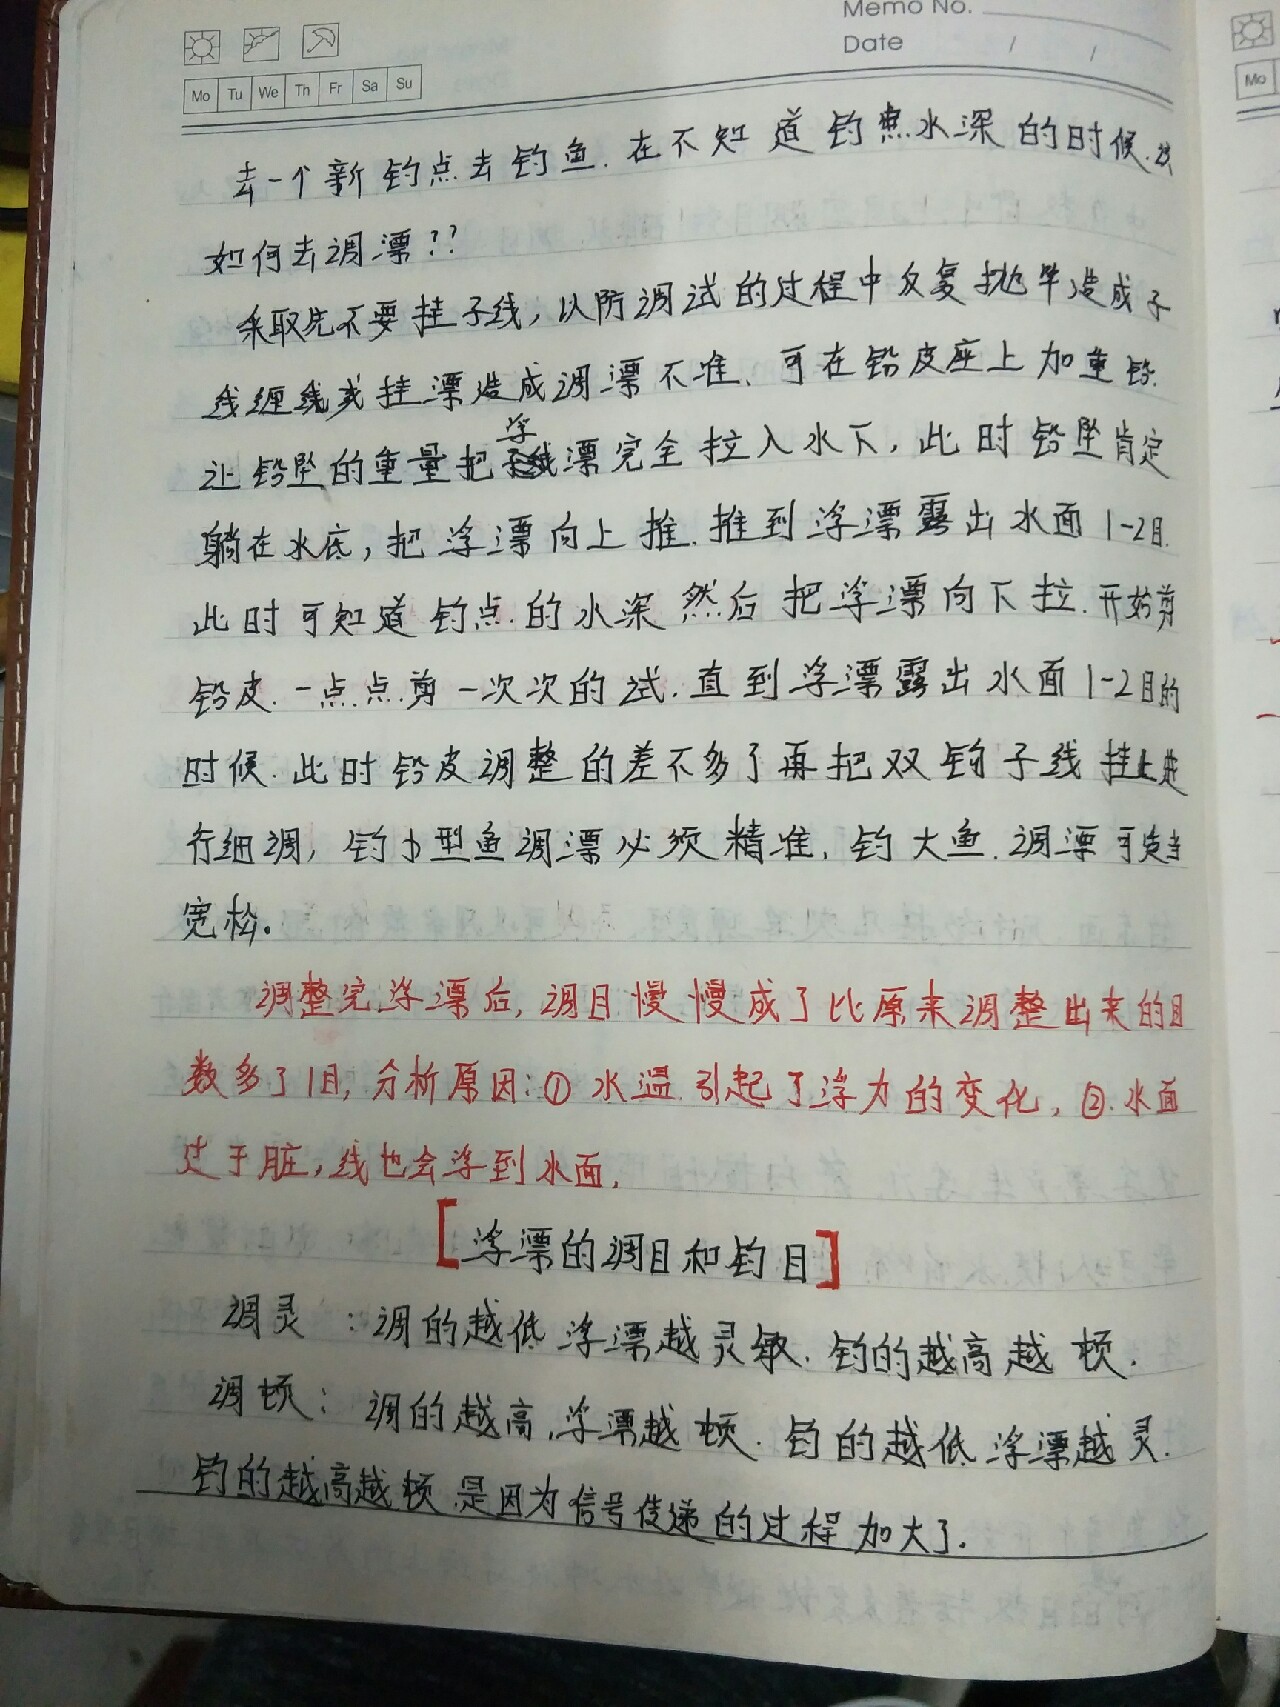 Memo No.
Date / /
Mo Tu We Th Fr Sa Su
Mo
去一个新钓点去钓鱼.在不知道钓点水深的时候.该
如何去调漂??
采取先不要挂子线,以防调试的过程中反复抛竿造成子
线缠线或挂漂造成调漂不准.可在铅皮座上加重铅.
让铅坠的重量把浮漂完全拉入水下,此时铅坠肯定
躺在水底,把浮漂向上推.推到浮漂露出水面1-2目.
此时可知道钓点的水深然后把浮漂向下拉.开始剪
铅皮.一点点剪一次次的试.直到浮漂露出水面1-2目的
时候.此时铅皮调整的差不多了再把双钩子线挂上进
行细调,钓小型鱼调漂必须精准,钓大鱼.调漂可适当
宽松。
调整完浮漂后,调目慢慢成了比原来调整出来的目
数多了1目,分析原因:①水温引起了浮力的变化,②.水面
过于脏,线也会浮到水面.
[浮漂的调目和钓目]
调灵:调的越低浮漂越灵敏.钓的越高越顿.
调顿:调的越高,浮漂越顿.钓的越低浮漂越灵.
钓的越高越顿是因为信号传递的过程加大了.